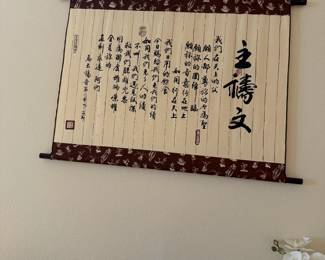 主禱文
我們在天上的父
願人都尊祢的名為聖
願祢的國降臨
願祢的旨意行在地上
如同行在天上
我們日用的飲食
今日賜給我們
免我們的債
如同我們免了人的債
不叫我們遇見試探
救我們脫離兇惡
因為國度權柄榮耀
全是祢的
直到永遠阿們
馬太福音